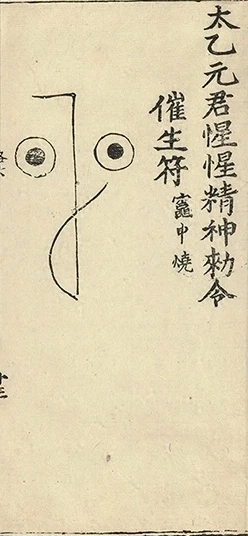 太乙元君惺惺精神勑令
催生符 竈中燒
十三